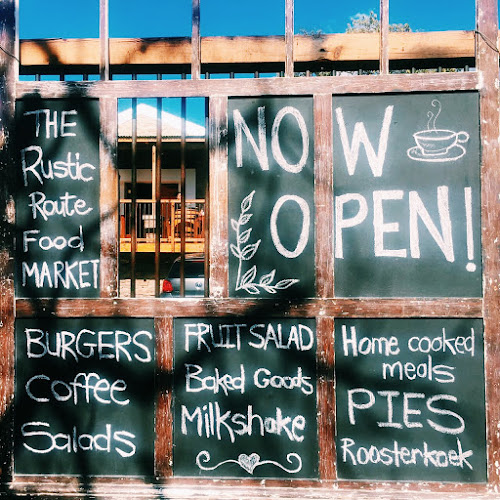 THE
Rustic
Route
Food
MARKET
NOW
OPEN!
BURGERS
Coffee
Salads
FRUIT SALAD
Baked Goods
Milkshake
Home cooked
meals
PIES
Roosterkoek